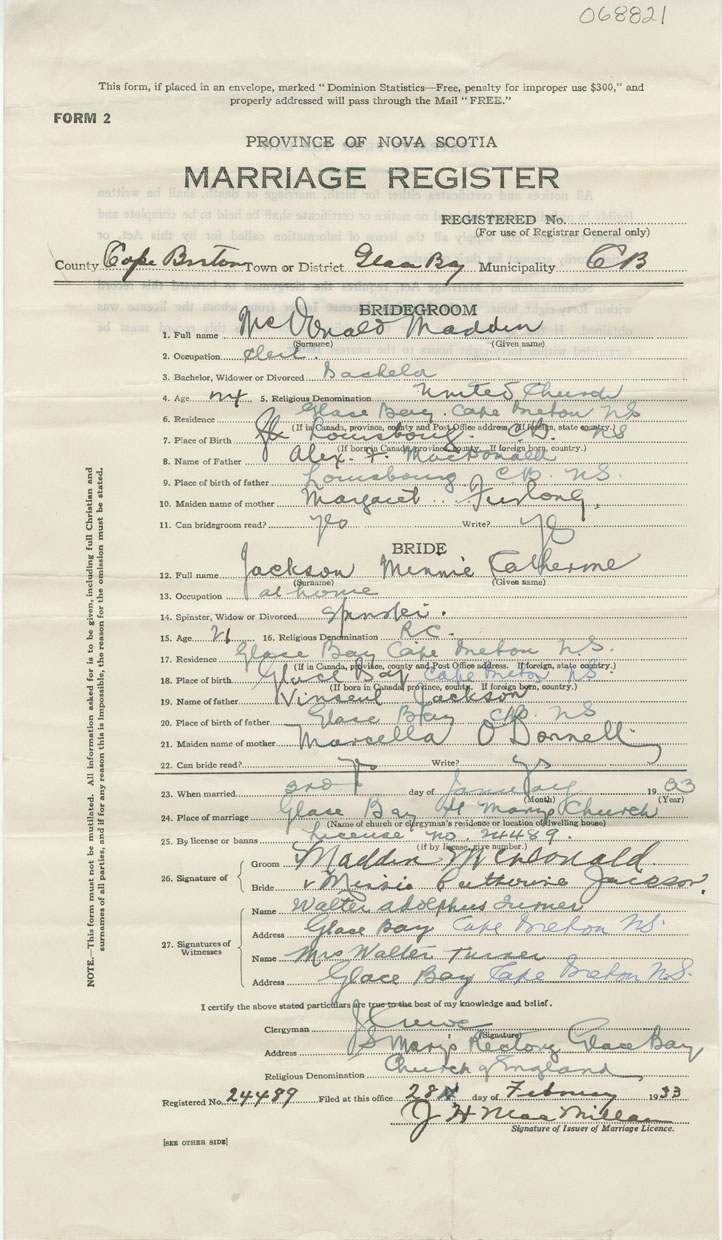 068821
This form, if placed in an envelope, marked "Dominion Statistics—Free, penalty for improper use $300," and
properly addressed will pass through the Mail "FREE."
FORM 2
PROVINCE OF NOVA SCOTIA
MARRIAGE REGISTER
REGISTERED No.
(For use of Registrar General only)
County Cape Breton Town or District Glace Bay Municipality CB
BRIDEGROOM
1. Full name McDonald Madden
(Surname) (Given name)
2. Occupation clerk.
3. Bachelor, Widower or Divorced Bachelor
4. Age 24 5. Religious Denomination United Church
6. Residence Glace Bay. Cape Breton NS
(If in Canada, province, county and Post Office address. If foreign, state country.)
7. Place of Birth Louisbourg. C.B. NS
(If born in Canada, province, county. If foreign born, country.)
8. Name of Father Alex. F. MacDonald
9. Place of birth of father Louisbourg C.B. N.S.
10. Maiden name of mother Margaret Furlong
11. Can bridegroom read? yes Write? yes
BRIDE
12. Full name Jackson Minnie Catherine
(Surname) (Given name)
13. Occupation at home
14. Spinster, Widow or Divorced Spinster.
15. Age 21 16. Religious Denomination R.C.
17. Residence Glace Bay Cape Breton N.S.
(If in Canada, province, county and Post Office address. If foreign, state country.)
18. Place of birth Glace Bay Cape Breton NS.
(If born in Canada, province, county. If foreign born, country.)
19. Name of father Vinsent Jackson
20. Place of birth of father Glace Bay C.B. NS
21. Maiden name of mother Marcella O'Donnell
22. Can bride read? yes Write? yes
23. When married 3rd day of January 1933
(Month) (Year)
24. Place of marriage Glace Bay St Marys Church
(Name of church or clergyman's residence or location of dwelling house)
25. By license or banns License no. 24489.
(If by license, give number.)
26. Signature of
Groom Madden McDonald
Bride Minnie Catherine Jackson.
27. Signatures of Witnesses
Name Walter Adolphus Turner
Address Glace Bay Cape Breton NS.
Name Mrs Walter Turner
Address Glace Bay Cape Breton N.S.
I certify the above stated particulars are true to the best of my knowledge and belief.
Clergyman
(Signature)
Address St Mary's Rectory Glace Bay
Religious Denomination Church of England
Registered No. 24489 Filed at this office 28 day of February 1933
J H MacMillan
Signature of Issuer of Marriage Licence.
[SEE OTHER SIDE]
NOTE.—This form must not be mutilated. All information asked for is to be given, including full Christian and
surnames of all parties, and if for any reason this is impossible, the reason for the omission must be stated.